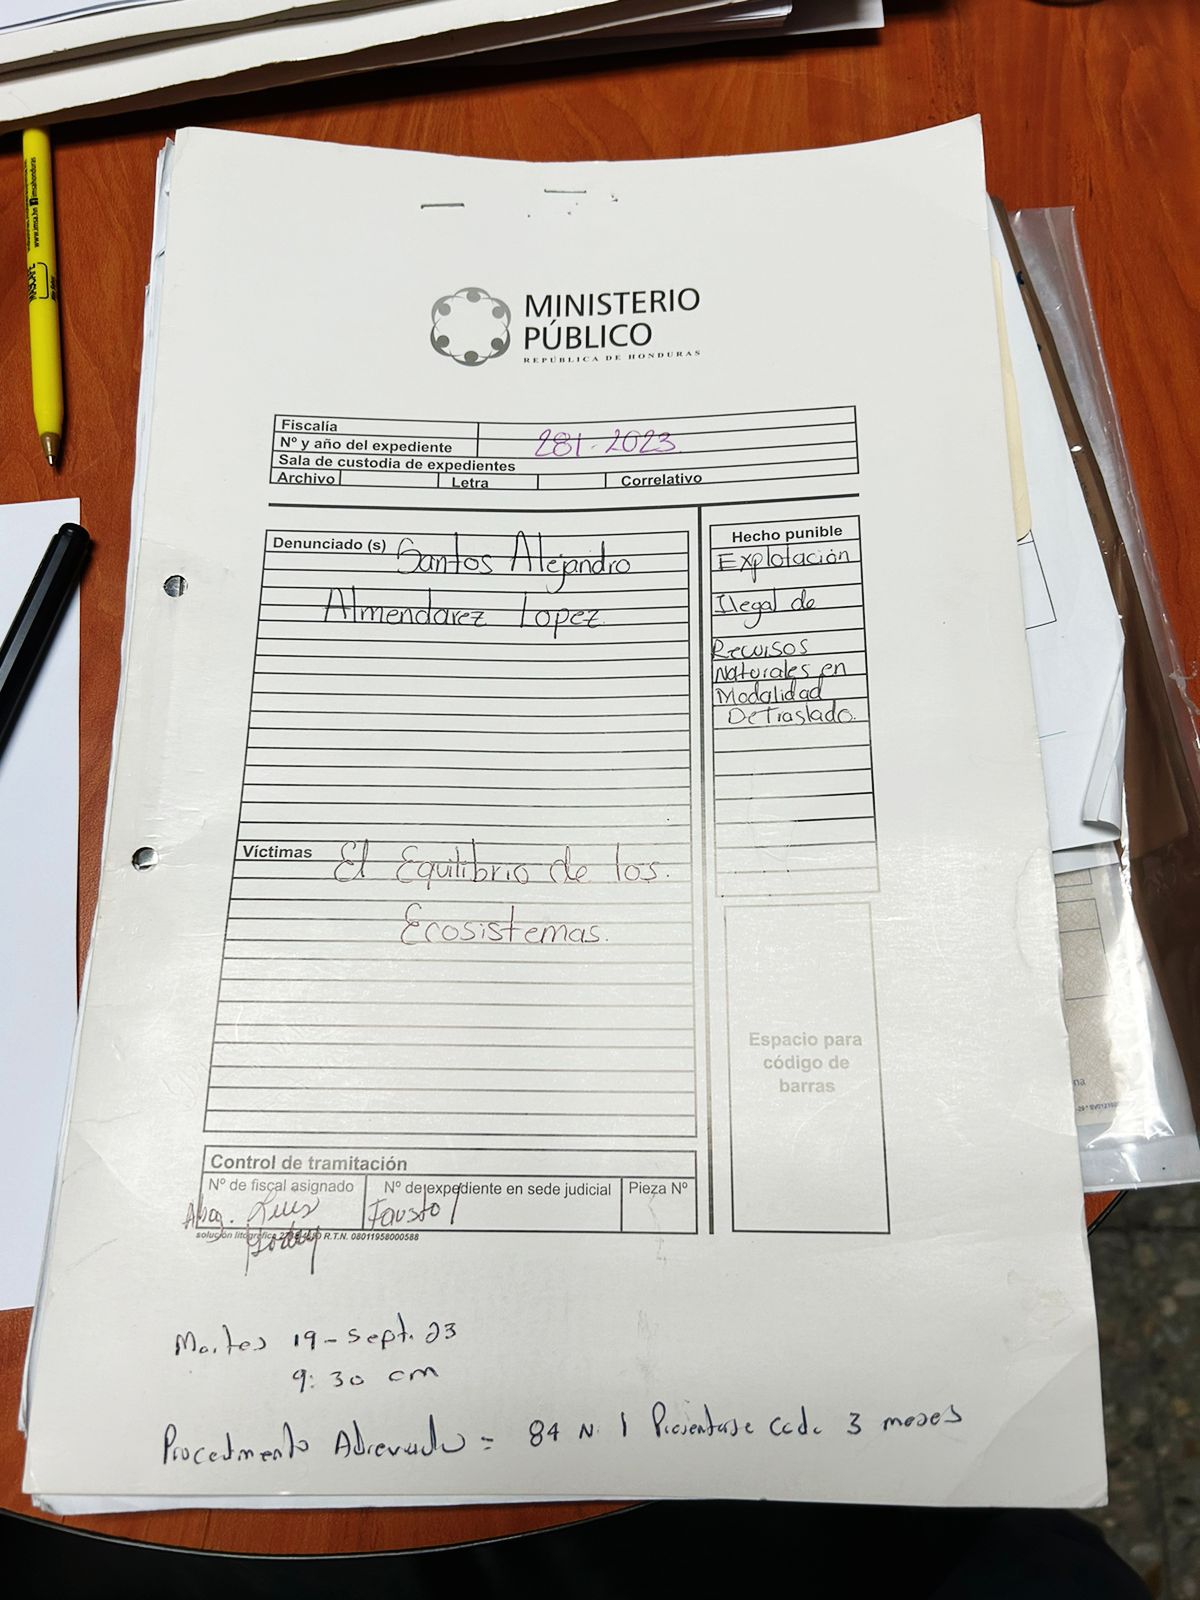 www.imsa.hn imsahonduras
MINISTERIO
PÚBLICO
REPÚBLICA DE HONDURAS
Fiscalía
Nº y año del expediente 281-2023
Sala de custodia de expedientes
Archivo Letra Correlativo
Denunciado (s) Santos Alejandro
Almendarez Lopez.
Hecho punible
Explotación
Ilegal de
Recursos
Naturales en
Modalidad
De Traslado.
Víctimas El Equilibrio de los.
Ecosistemas.
Espacio para
código de
barras
Control de tramitación
Nº de fiscal asignado Nº de expediente en sede judicial Pieza Nº
Abog. Luis Fausto
solución litográfica R.T.N. 08011958000588
Martes 19-Sept. 23
9:30 am
Procedimento Abreviado = 84 N. 1 Presentarse Cada 3 meses